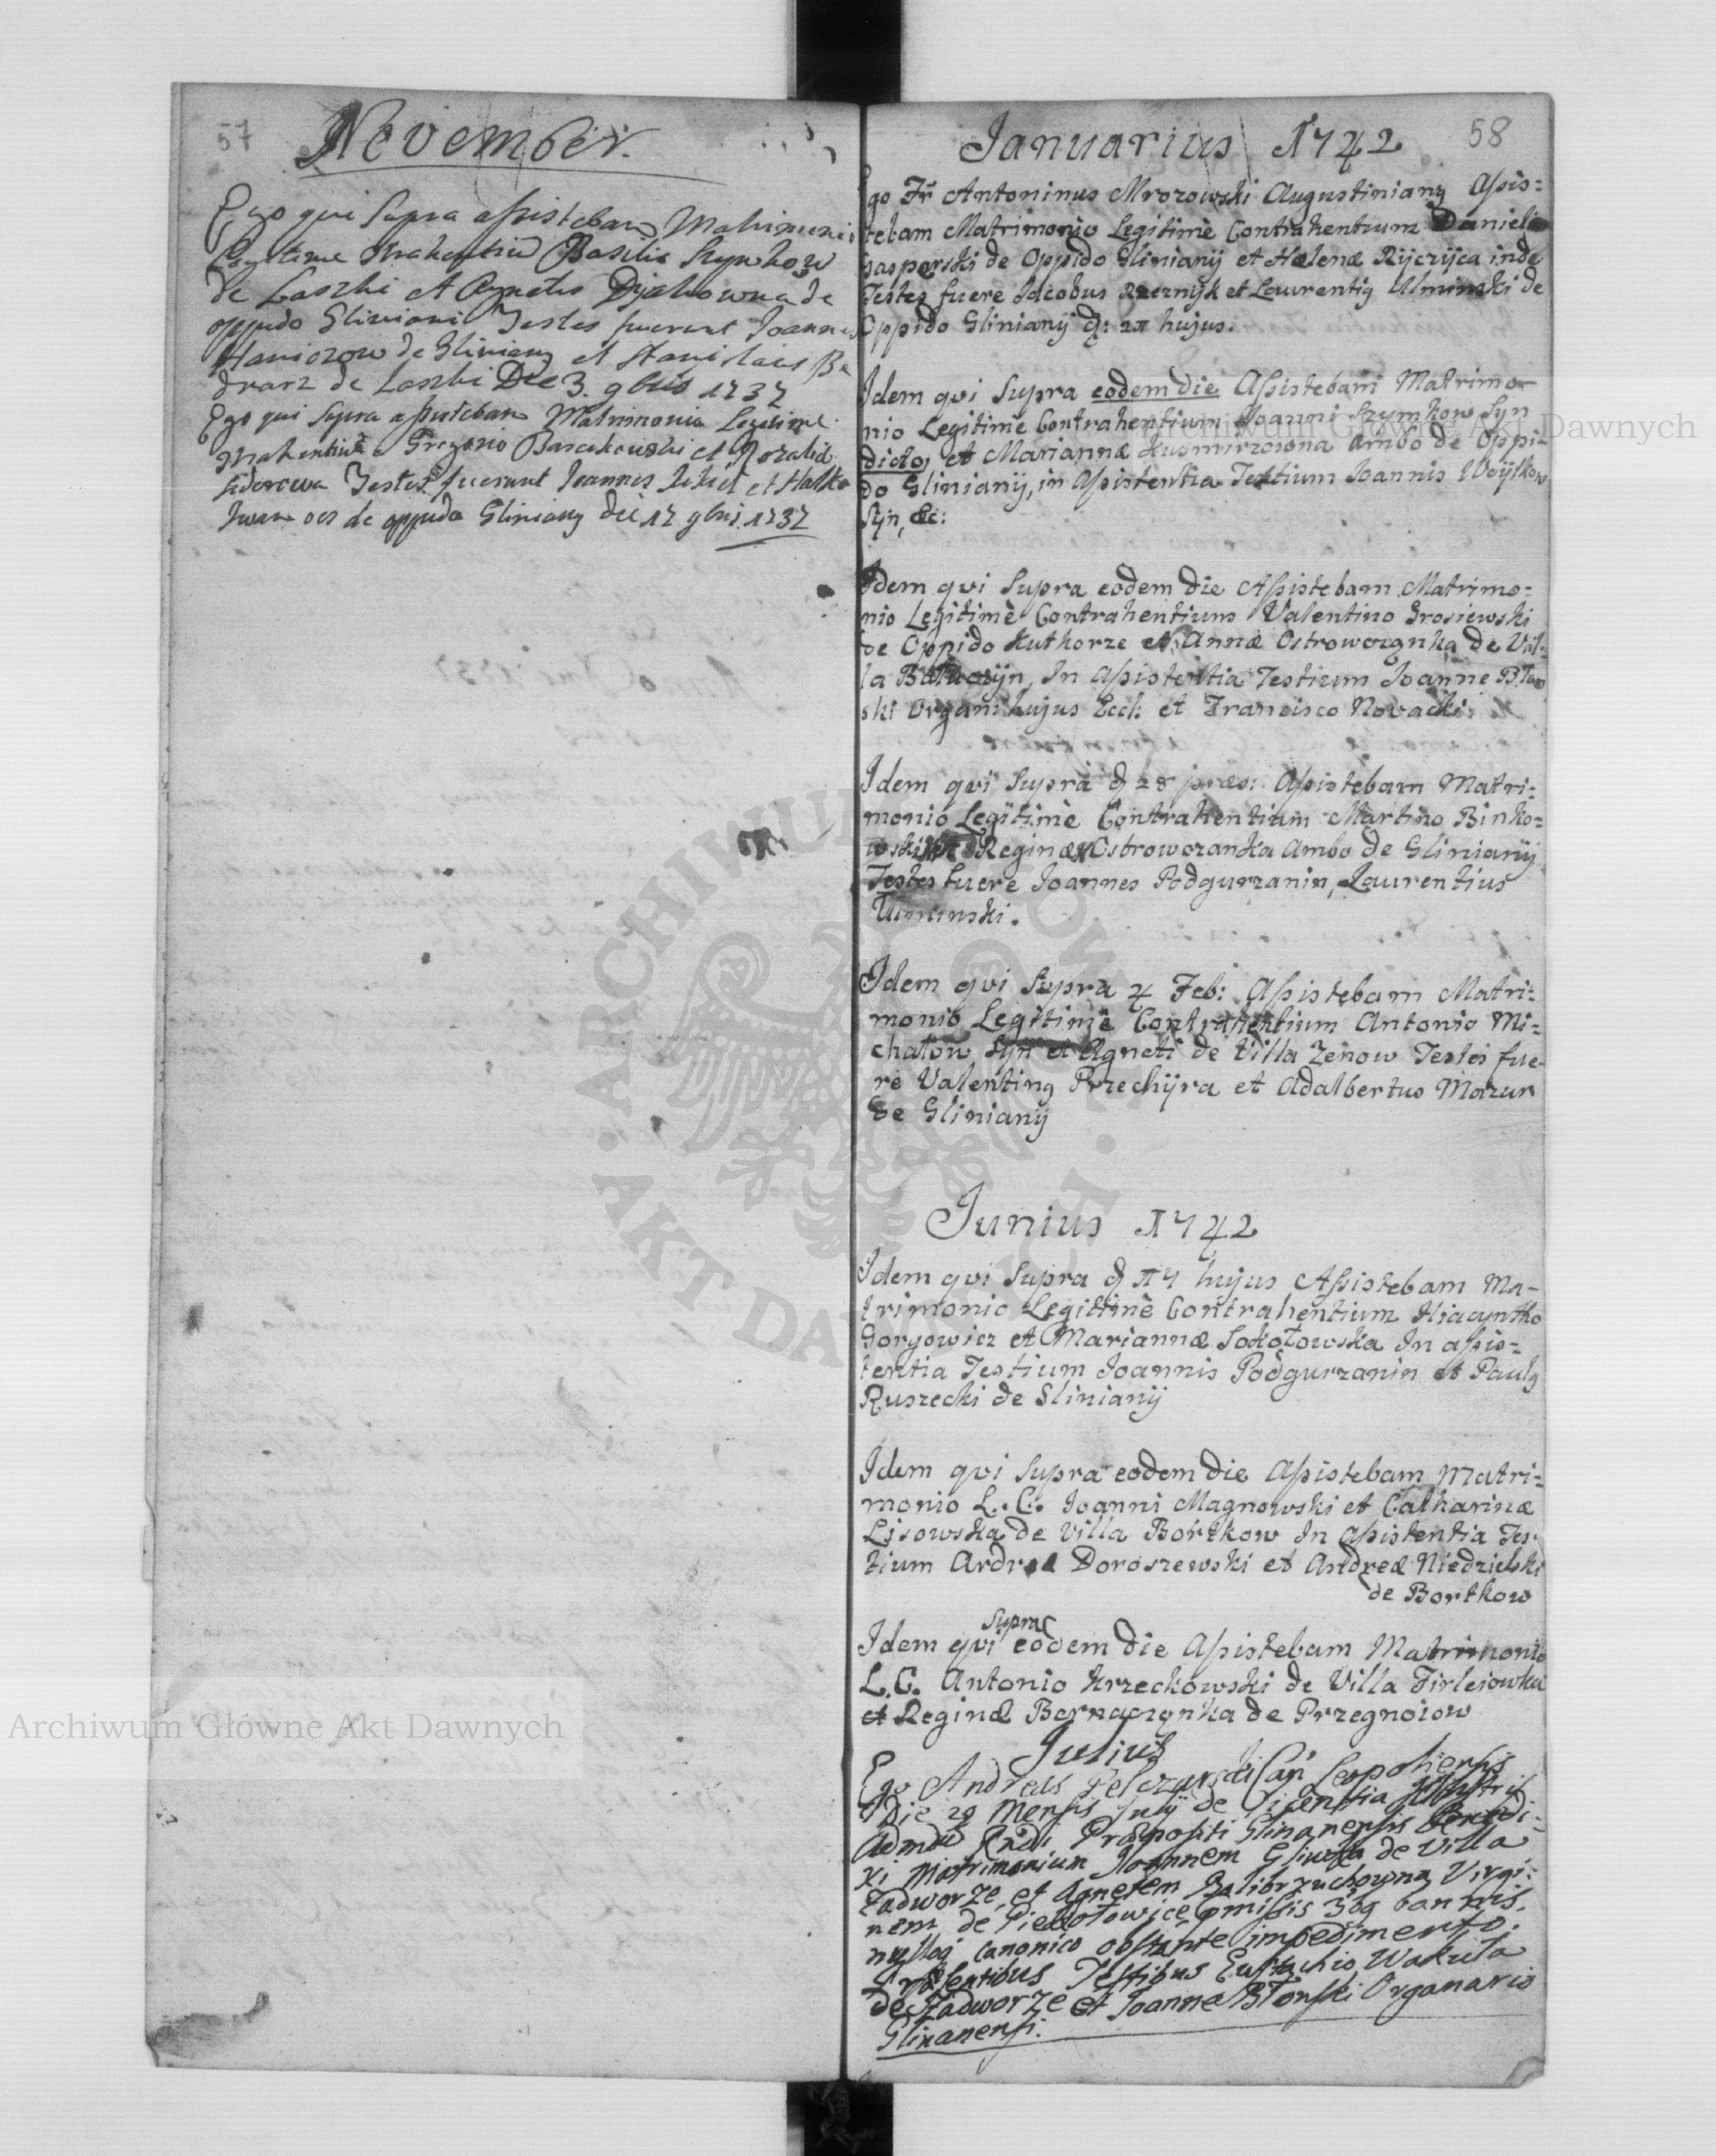 57
November.
Ego qui supra assistebam Matrimonio
Legitime Basilio
de Laszki et de
oppido Gliniani Testes fuerunt Joannes
de Gliniany et Stanislaus Be
drarz de Laszki Die 3. 9bris 1737
Ego qui supra assistebam Matrimonio Legitime
Gregorio et
Testes fuerunt Joannes et
de oppido Gliniany die 17 9bris 1737
58
Januarius 1742
Ego Fr Antoninus Mrozowski Augustinianus Assis=
tebam Matrimonio Legitimè Contrahentium Danieli
Gasparski de Oppido Glinianÿ et Helenæ Rÿcrÿca inde
Testes fuere Jacobus Rzeznÿk et Laurentius Uminski de
Oppido Glinianÿ d: hujus.
Idem qvi Supra eodem die Assistebam Matrimo-
nio Legitimè Contrahentium Joanni Szymkow Syn
dicto, et Mariannæ Kusmirzowna Ambo de Oppi=
do Glinianÿ, in Assistentia Testium Joannis Woÿtkow
Sÿn, &c:
Idem qvi Supra eodem die Assistebam Matrimo=
nio Legitimè Contrahentium Valentino Grosiewski
de Oppido Kutkorze et Annæ Ostroworznka de Vil=
la In Assistentia Testium Joanne Błon
ski Organ: hujus Eccl: et Francisco Novacki
Idem qvi Supra d 28 præs: Assistebam Matri=
monio Legitimè Contrahentium Martino Binko=
wski et Reginæ Ostroworzanka Ambo de Glinianÿ
Testes fuere Joannes Podgurzanin, Laurentius
Uminski.
Idem qvi Supra 4 Feb: Assistebam Matri=
monio Legitimè Contrahentium Antonio Mi=
chałow Sÿn et Agneti de Villa Zenow Testes fue-
re Valentinus Przechÿra et Adalbertus Mazur
de Glinianÿ
Junius 1742
Idem qvi Supra d 17 hujus Assistebam Ma-
trimonio Legittimè Contrahentium Hiacyntho
Goryowicz et Mariannæ Sokołowska In assis=
tentia Testium Joannis Podgurzanin et Paulus
Ruszecki de Glinianÿ
Idem qvi Supra eodem die Assistebam Matri=
monio L. C. Joanni Magnowski et Catharinæ
Lisowska de Villa Bortkow In Assistentia Tes
tium Doroszewski et Andreæ Niedzielski
de Bortkow
Supra
Idem qvi eodem die Assistebam Matrimonio
L.C. Antonio Krzeckowski de Villa Firleiowka
et Reginæ Bernaczynka de Przegnoiow
Julius
Ego Andreas Pelczarski Can Leopoliensis
Die 29 Mensis Julÿ de licentia Illustris
Admdu Rndi Præpositi Glinanensis Benedi=
xi Matrimonium Joannem Gliwka de Villa
Zadworze, et Agnetem Virgi=
nem de Pietołowice pmissis 3bg bannis,
nulloq canonico obstante impedimento.
Præsentibus Testibus Eustachio Wakuła
de Zadworze et Joanne Błonski Organario
Glinanensi.
Archiwum Główne Akt Dawnych
Archiwum Główne Akt Dawnych